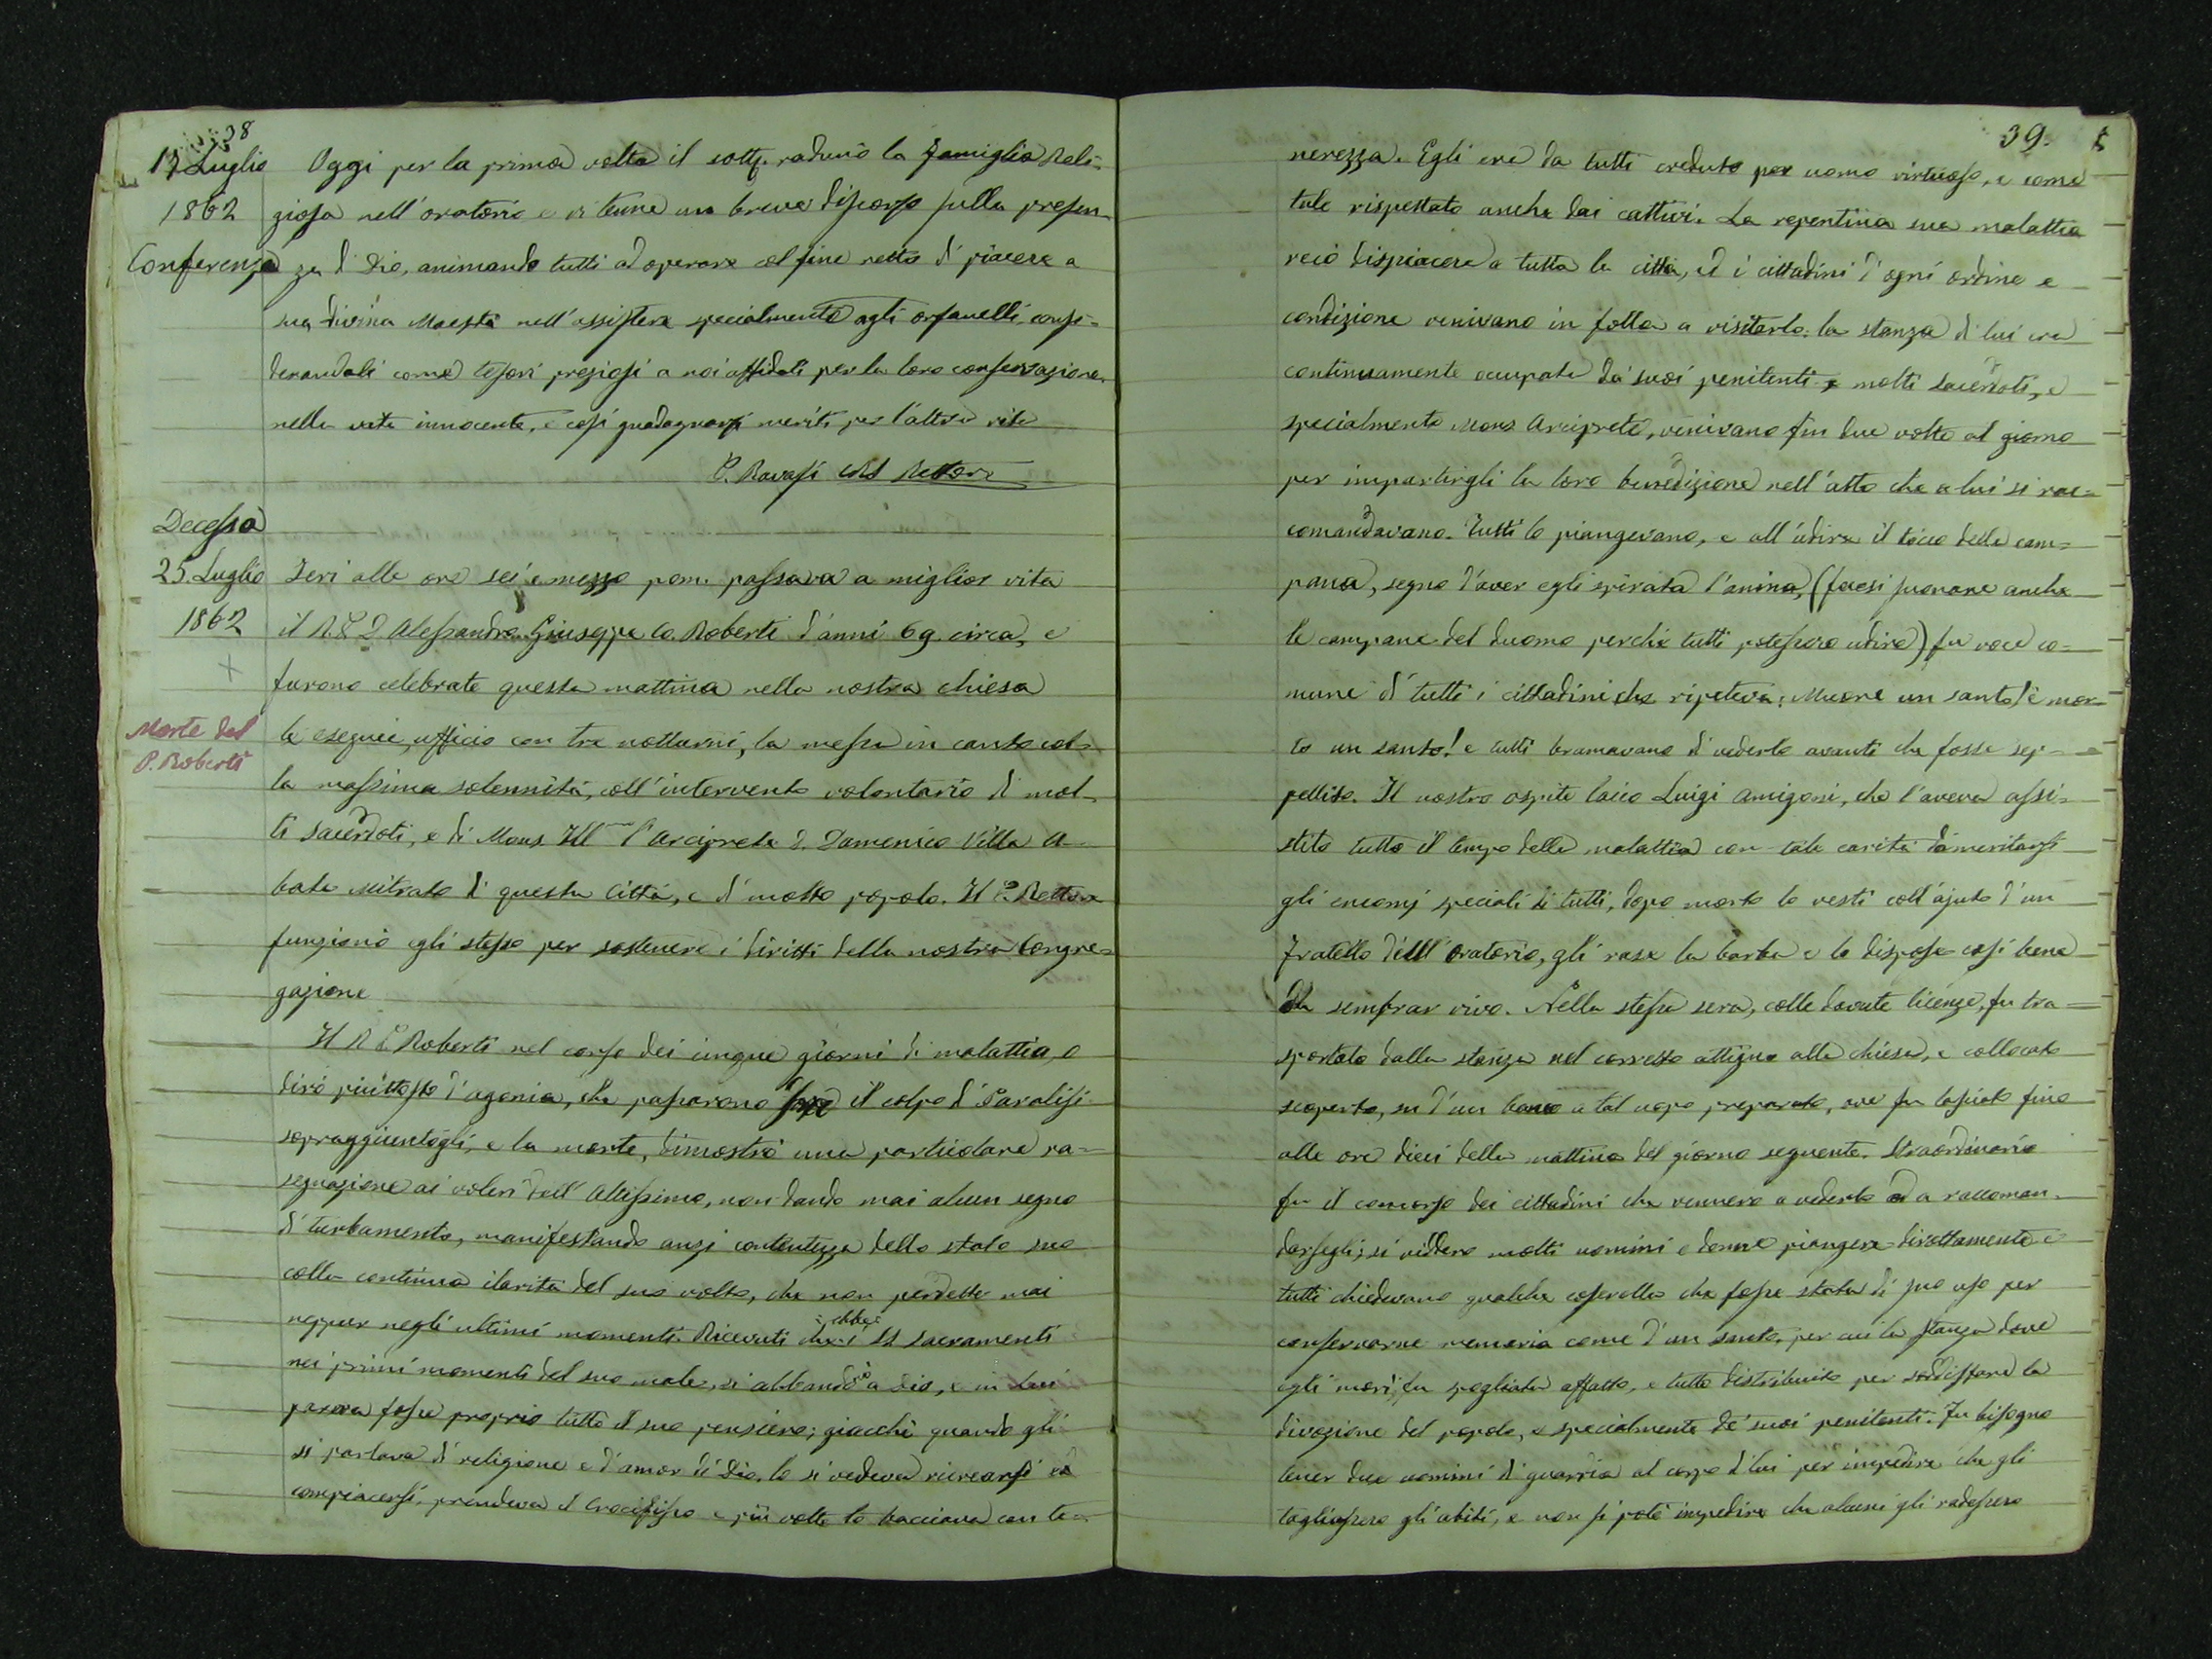 38
17 Luglio
1862
Conferenza
Oggi per la prima volta il sott. radunò la Famiglia Reli-
giosa nell'oratorio e vi tenne un breve discorso sulla presen-
za di Dio, animando tutti ad operare col fine retto di piacere a
sua divina Maestà nell'assistere specialmente agli orfanelli, consi-
derandoli come tesori preziosi a noi affidati per la loro conservazione
nella vita innocente, e così guadagnarsi meriti per l'altra vita
P. Ravasi CRS Rettore
Decesso
25. Luglio
1862
+
Morte del
P. Roberti
Ieri alle ore sei e mezzo pom. passava a miglior vita
il R. P. D. Alessandro Giuseppe Co. Roberti d'anni 69. circa, e
furono celebrate questa mattina nella nostra chiesa
le esequie, ufficio con tre notturni, la messa in canto col-
la massima solennità, coll'intervento volontario di mol-
ti sacerdoti, e di Mons. Ill.mo l'Arciprete D. Domenico Villa A-
bate Mitrato di questa Città, e di molto popolo. Il P. Rettore
funzionò egli stesso per sostenere i diritti della nostra Congre-
gazione
Il R. P. Roberti nel corso dei cinque giorni di malattia, o
dirò piuttosto d'agonia, che passarono fra il colpo di Paralisi
sopraggiuntogli, e la morte, dimostrò una particolare ra-
segnazione ai voleri dell'Altissimo, non dando mai alcun segno
di turbamento, manifestando anzi contentezza dello stato suo
colla continua ilarità del suo volto, che non perdette mai
neppur negli ultimi momenti. Ricevuti che ebbe i SS. Sacramenti
nei primi momenti del suo male, si abbandonò a Dio, e in Lui
pareva fosse proprio tutto il suo pensiero; giacchè quando gli
si parlava di religione e d'amor di Dio, lo si vedeva ricrearsi e
compiacersi, prendeva il Crocifisso e più volte lo bacciava con te-
39.
nerezza. Egli era da tutti creduto per uomo virtuoso, e come
tale rispettato anche dai cattivi. La repentina sua malattia
recò dispiacere a tutta la città, ed i cittadini d'ogni ordine e
condizione venivano in folla a visitarlo: la stanza di lui era
continuamente occupata da' suoi penitenti e molti sacerdoti, e
specialmente Mons. Arciprete, venivano fin due volte al giorno
per impartirgli la loro benedizione nell'atto che a lui si rac-
comandavano. Tutti lo piangevano, e all'udire il tocco della cam-
pana, segno d'aver egli spirata l'anima, (fecesi suonare anche
le campane del duomo perchè tutti potessero udire) fu voce co-
mune di tutti i cittadini che ripeteva: Muore un santo! è mor-
to un santo! e tutti bramavano di vederlo avanti che fosse sep-
pellito. Il nostro ospite laico Luigi Amigoni, che l'aveva assi-
stito tutto il tempo della malattia con tale carità da meritarsi
gli encomj speciali di tutti, dopo morto lo vestì coll'ajuto d'un
Fratello dell'Oratorio, gli rase la barba e lo dispose così bene
da sembrar vivo. Nella stessa sera, colle dovute licenze, fu tra-
sportato dalla stanza nel corretto attiguo alla chiesa, e collocato
scoperto, su d'un banco a tal uopo preparato, ove fu lasciato fino
alle ore dieci della mattina del giorno seguente. Straordinario
fu il concorso dei cittadini che vennero a vederlo ed a raccoman-
darsegli; si viddero molti uomini e donne piangere dirottamente e
tutti chiedevano qualche coserella che fosse stata di suo uso per
conservarne memoria come d'un santo, per cui la stanza dove
egli morì, fu spogliata affatto, e tutto distribuito per soddisfare la
divozione del popolo, e specialmente de' suoi penitenti. Fu bisogno
tener due uomini di guardia al corpo di lui per impedire che gli
tagliassero gli abiti, e non si potè impedire che alcuni gli radessero